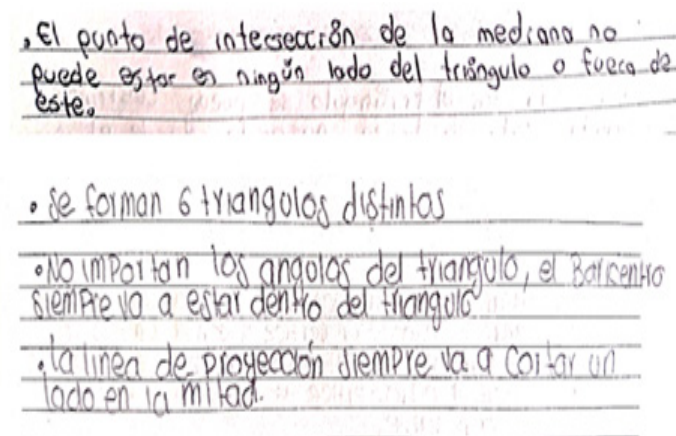 . El punto de intersección de la mediana no
puede estar en ningún lado del triángulo o fuera de
este.
• Se forman 6 triangulos distintos
• No importan los angulos del triangulo, el Baricentro
siempre va a estar dentro del triangulo
• la linea de proyección siempre va a cortar un
lado en la mitad.